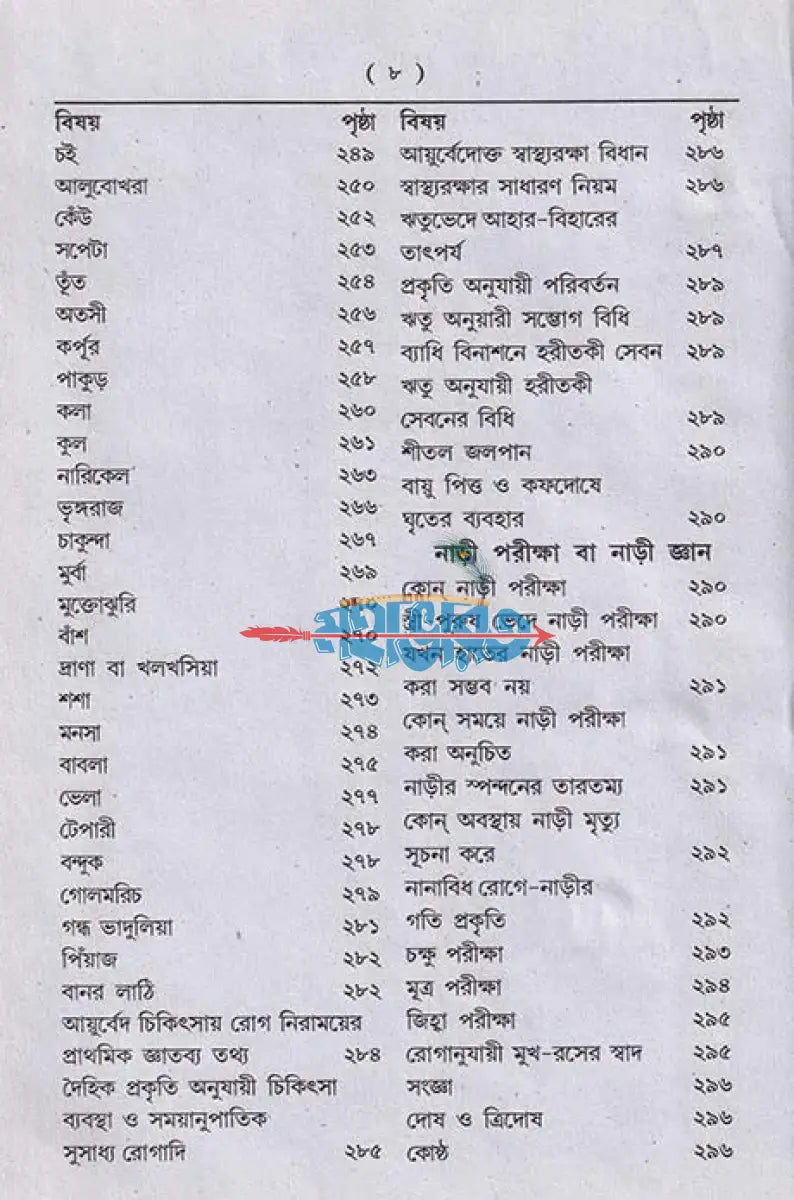 ( ৮ )
বিষয় পৃষ্ঠা
চই ২৪৯
আলুবোখরা ২৫০
কেঁউ ২৫২
সপেটা ২৫৩
তুঁত ২৫৪
অতসী ২৫৬
কর্পূর ২৫৭
পাকুড় ২৫৮
কলা ২৬০
কুল ২৬১
নারিকেল ২৬৩
ভৃঙ্গরাজ ২৬৬
চাকুন্দা ২৬৭
মুর্বা ২৬৯
মুক্তোঝুরি
বাঁশ ২৭০
দ্রাণা বা খলখসিয়া ২৭২
শশা ২৭৩
মনসা ২৭৪
বাবলা ২৭৫
ভেলা ২৭৭
টেপারী ২৭৮
বন্দুক ২৭৮
গোলমরিচ ২৭৯
গন্ধ ভাদুলিয়া ২৮১
পিঁয়াজ ২৮২
বানর লাঠি ২৮২
আয়ুর্বেদ চিকিৎসায় রোগ নিরাময়ের
প্রাথমিক জ্ঞাতব্য তথ্য ২৮৪
দৈহিক প্রকৃতি অনুযায়ী চিকিৎসা
ব্যবস্থা ও সময়ানুপাতিক
সুসাধ্য রোগাদি ২৮৫
বিষয় পৃষ্ঠা
আয়ুর্বেদোক্ত স্বাস্থ্যরক্ষা বিধান ২৮৬
স্বাস্থ্যরক্ষার সাধারণ নিয়ম ২৮৬
ঋতুভেদে আহার-বিহারের
তাৎপর্য ২৮৭
প্রকৃতি অনুযায়ী পরিবর্তন ২৮৯
ঋতু অনুয়ারী সম্ভোগ বিধি ২৮৯
ব্যাধি বিনাশনে হরীতকী সেবন ২৮৯
ঋতু অনুযায়ী হরীতকী
সেবনের বিধি ২৮৯
শীতল জলপান ২৯০
বায়ু পিত্ত ও কফদোষে
ঘৃতের ব্যবহার ২৯০
নাড়ী পরীক্ষা বা নাড়ী জ্ঞান
কোন্ নাড়ী পরীক্ষা ২৯০
স্ত্রী পুরুষ ভেদে নাড়ী পরীক্ষা ২৯০
যখন হাতের নাড়ী পরীক্ষা
করা সম্ভব নয় ২৯১
কোন্ সময়ে নাড়ী পরীক্ষা
করা অনুচিত ২৯১
নাড়ীর স্পন্দনের তারতম্য ২৯১
কোন্ অবস্থায় নাড়ী মৃত্যু
সূচনা করে ২৯২
নানাবিধ রোগে-নাড়ীর
গতি প্রকৃতি ২৯২
চক্ষু পরীক্ষা ২৯৩
মূত্র পরীক্ষা ২৯৪
জিহ্বা পরীক্ষা ২৯৫
রোগানুযায়ী মুখ-রসের স্বাদ ২৯৫
সংজ্ঞা ২৯৬
দোষ ও ত্রিদোষ ২৯৬
কোষ্ঠ ২৯৬
মহাভারত